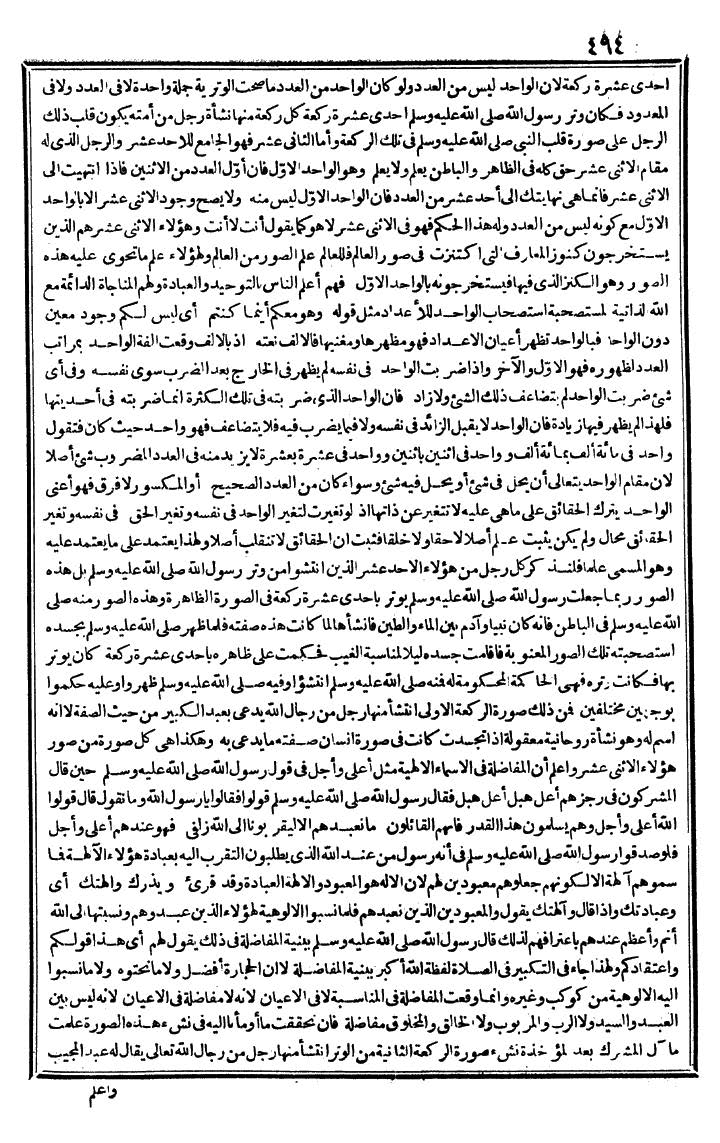 ٤٩٤
احدى عشرة ركعة لان الواحد ليس من العدد ولو كان الواحد من العدد ماصحت الوترية جملة واحدة لافى العدد ولافى
المعدود فكان وتر رسول الله صلى الله عليه وسلم احدى عشرة ركعة كل ركعة منها نشأة رجل من أمته يكون قلب ذلك
الرجل على صورة قلب النبى صلى الله عليه وسلم فى تلك الركعة وأما الثانى عشر فهو الجامع للاحد عشر والرجل الذى له
مقام الاثنى عشر حق كله فى الظاهر والباطن يعلم ولايعلم وهو الواحد الاول فان أول العدد من الاثنين فاذا انتهيت الى
الاثنى عشر فانماهى نهايتك الى أحد عشر من العدد فان الواحد الاول ليس منه ولا يصح وجود الاثنى عشر الابالواحد
الاول مع كونه ليس من العدد وله هذا الحكم فهو فى الاثنى عشر لاهو كما يقول أنت لاأنت وهؤلاء الاثنى عشر هم الذين
يستخرجون كنوز المعارف التى اكتنزت فى صور العالم فللعالم علم الصور من العالم ولهؤلاء علم ماتحوى عليه هذه
الصور وهو الكنز الذى فيها فيستخرجونه بالواحد الاول فهم أعلم الناس بالتوحيد والعبادة ولهم المناجاة الدائمة مع
الله الذاتية المستصحبة استصحاب الواحد للأعداد مثل قوله وهو معكم أينما كنتم أى ليس لكم وجود معين
دون الواحد فبالواحد تظهر أعيان الاعداد فهو مظهرها ومفنيها فالالف نعته اذ بالالف وقعت الفة الواحد بمراتب
العدد لظهوره فهو الاول والآخر واذا ضربت الواحد فى نفسه لم يظهر فى الخارج بعد الضرب سوى نفسه وفى أى
شئ ضربت الواحد لم يتضاعف ذلك الشئ ولازاد فان الواحد الذى ضربته فى تلك الكثرة انما ضربته فى أحديتها
فلهذا لم يظهر فيها زيادة فان الواحد لايقبل الزائد فى نفسه ولافيما يضرب فيه فلا يتضاعف فهو واحد حيث كان فتقول
واحد فى مائة ألف بمائة ألف وواحد فى اثنين باثنين وواحد فى عشرة بعشرة لايزيد منه فى العدد المضروب شئ أصلا
لان مقام الواحد يتعالى أن يحل فى شئ أو يحل فيه شئ وسواء كان من العدد الصحيح أو المكسور لافرق فهو أعنى
الواحد يترك الحقائق على ماهى عليه لاتتغير عن ذاتها اذ لو تغيرت لتغير الواحد فى نفسه وتغير الحق فى نفسه وتغير
الحقائق محال ولم يكن يثبت علم أصلا لاحقا ولا خلقا فثبت ان الحقائق لاتنقلب أصلا ولهذا يعتمد على مايعتمد عليه
وهو المسمى علما فلنذكر كل رجل من هؤلاء الاحد عشر الذين انتشوا من وتر رسول الله صلى الله عليه وسلم بل هذه
الصور ربما جعلت رسول الله صلى الله عليه وسلم يوتر باحدى عشرة ركعة فى الصورة الظاهرة وهذه الصور منه صلى
الله عليه وسلم فى الباطن فانه كان نبيا وآدم بين الماء والطين فانشأها لما كانت هذه صفته فلما ظهر صلى الله عليه وسلم بجسده
استصحبته تلك الصور المعنوية فاقامت جسده ليلا لمناسبة الغيب فحكمت على ظاهره باحدى عشرة ركعة كان يوتر
بها فكانت وتره فهى الحاكمة المحكومة له فمنه صلى الله عليه وسلم انتشؤا وفيه صلى الله عليه وسلم ظهروا وعليه حكموا
بوجهين مختلفين فمن ذلك صورة الركعة الاولى انتشأ منها رجل من رجال الله يدعى بعبد الكبير من حيث الصفة لاانه
اسم له وهو نشأة روحانية معقولة اذا تجسدت كانت فى صورة انسان صفته مايدعى به وهكذاهى كل صورة من صور
هؤلاء الاثنى عشر واعلم أن المفاضلة فى الاسماء الالهية مثل أعلى وأجل فى قول رسول الله صلى الله عليه وسلم حين قال
المشركون فى رجزهم أعل هبل أعل هبل فقال رسول الله صلى الله عليه وسلم قولوا فقالوا يارسول الله ومانقول قال قولوا
الله أعلى وأجل وهم يسلمون هذا القدر فانهم القائلون مانعبدهم الاليقربونا الى الله زلفى فهو عندهم أعلى وأجل
فلو صدقوا رسول الله صلى الله عليه وسلم فى أنه رسول من عند الله الذى يطلبون التقرب اليه بعبادة هؤلاء الآلهة فما
سموهم آلهة الالكونهم جعلوهم معبودين لهم لان الاله هو المعبود والالهة العبادة وقد قرئ ويذرك والهتك أى
وعبادتك واذا قال وآلهتك يقول والمعبودين الذين نعبدهم فلما نسبوا الالوهية لهؤلاء الذين عبدوهم ونسبتها الى الله
أتم وأعظم عندهم باعترافهم لذلك قال رسول الله صلى الله عليه وسلم ببنية المفاضلة فى ذلك يقول لهم أى هذا قولكم
واعتقادكم ولهذا جاء فى التكبير فى الصلاة لفظة الله أكبر ببنية المفاضلة لاان الحجارة أفضل ولامانحتوه ولامانسبوا
اليه الالوهية من كوكب وغيره وانما وقعت المفاضلة فى المناسبة لافى الاعيان لانه لامفاضلة فى الاعيان لانه ليس بين
العبد والسيد ولاالرب والمربوب ولاالخالق والمخلوق مفاضلة فان تحققت ماأومأنا اليه فى نشء هذه الصورة علمت
مآل المشرك بعد المؤاخذة نشء صورة الركعة الثانية من الوتر انتشأ منها رجل من رجال الله تعالى يقال له عبد المجيب
واعلم